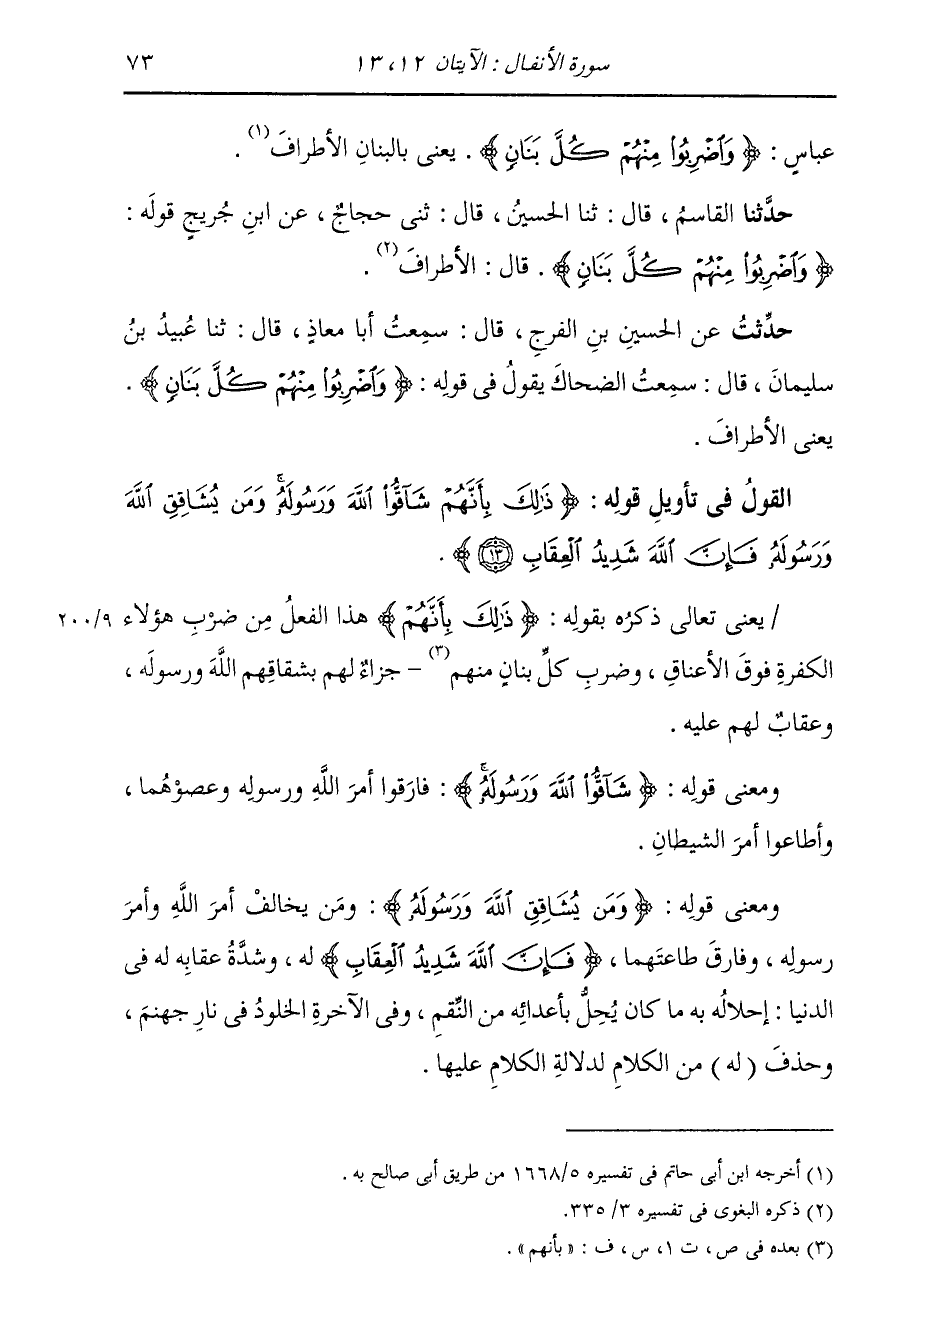 سورة الأنفال : الآيتان ١٢، ١٣ ٧٣
عباسٍ : ﴿ وَٱضْرِبُوا۟ مِنْهُمْ كُلَّ بَنَانٍ ﴾ . يعنى بالبنانِ الأطرافَ(١) .
حدَّثنا القاسمُ ، قال : ثنا الحسينُ ، قال : ثنى حجاجٌ ، عن ابنِ جُريجٍ قولَه :
﴿ وَٱضْرِبُوا۟ مِنْهُمْ كُلَّ بَنَانٍ ﴾ . قال : الأطرافَ(٢) .
حدِّثتُ عن الحسينِ بنِ الفرجِ ، قال : سمِعتُ أبا معاذٍ ، قال : ثنا عُبيدُ بنُ
سليمانَ ، قال : سمِعتُ الضحاكَ يقولُ فى قولِه : ﴿ وَٱضْرِبُوا۟ مِنْهُمْ كُلَّ بَنَانٍ ﴾ .
يعنى الأطرافَ .
القولُ فى تأويلِ قولِه : ﴿ ذَٰلِكَ بِأَنَّهُمْ شَآقُّوا۟ ٱللَّهَ وَرَسُولَهُۥۚ وَمَن يُشَاقِقِ ٱللَّهَ
وَرَسُولَهُۥ فَإِنَّ ٱللَّهَ شَدِيدُ ٱلْعِقَابِ ۝١٣ ﴾ .
/ يعنى تعالى ذكرُه بقولِه : ﴿ ذَٰلِكَ بِأَنَّهُمْ ﴾ هذا الفعلُ مِن ضرْبِ هؤلاء ٢٠٠/٩
الكفرةِ فوقَ الأعناقِ ، وضربِ كلِّ بنانٍ منهم(٣) – جزاءٌ لهم بشقاقِهم اللَّهَ ورسولَه ،
وعقابٌ لهم عليه .
ومعنى قولِه : ﴿ شَآقُّوا۟ ٱللَّهَ وَرَسُولَهُۥۚ ﴾ : فارَقوا أمرَ اللَّهِ ورسولِه وعصوْهُما ،
وأطاعوا أمرَ الشيطانِ .
ومعنى قولِه : ﴿ وَمَن يُشَاقِقِ ٱللَّهَ وَرَسُولَهُۥ ﴾ : ومَن يخالفْ أمرَ اللَّهِ وأمرَ
رسولِه ، وفارقَ طاعتَهما ، ﴿ فَإِنَّ ٱللَّهَ شَدِيدُ ٱلْعِقَابِ ﴾ له ، وشدَّةُ عقابِه له فى
الدنيا : إحلالُه به ما كان يُحِلُّ بأعدائِه من النِّقمِ ، وفى الآخرةِ الخلودُ فى نارِ جهنمَ ،
وحذفَ ( له ) من الكلامِ لدلالةِ الكلامِ عليها .
(١) أخرجه ابن أبى حاتم فى تفسيره ١٦٦٨/٥ من طريق أبى صالح به .
(٢) ذكره البغوى فى تفسيره ٣/ ٣٣٥.
(٣) بعده فى ص ، ت ١، س ، ف : « بأنهم » .